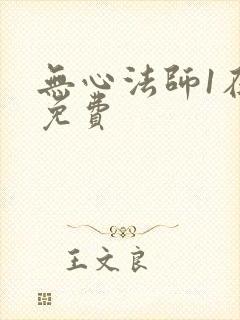 無心法師1在
免費
王文良